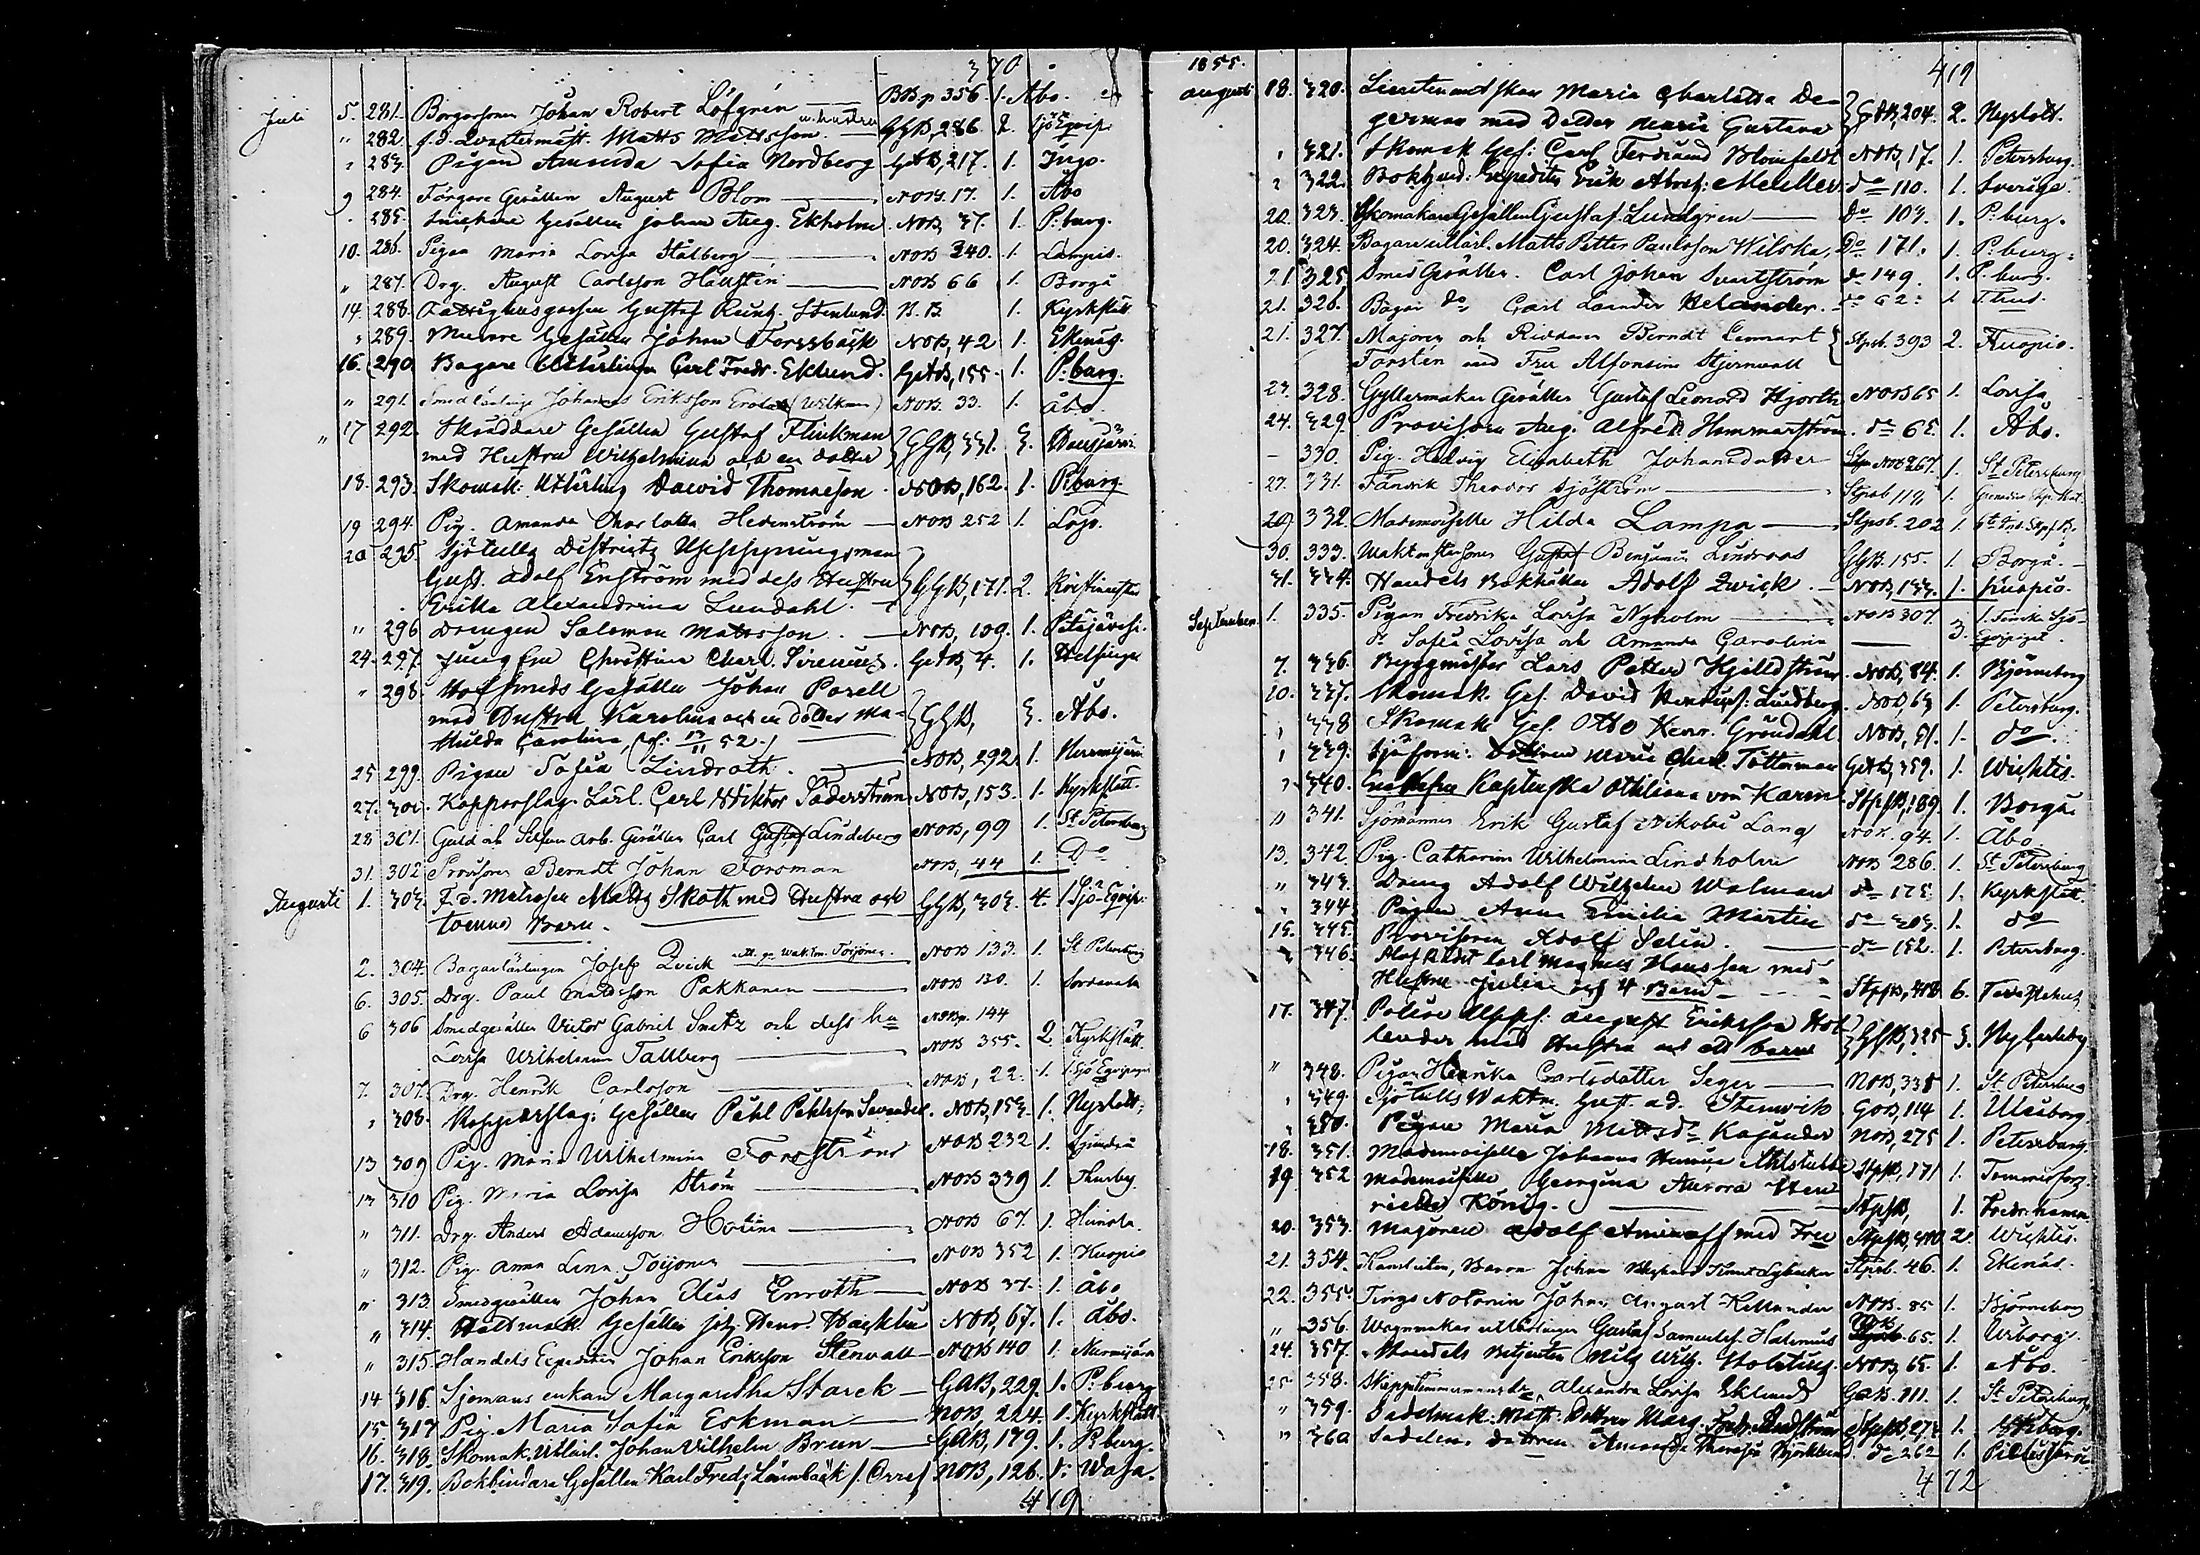 370
Juli 5. 281. Borgarsonen Johan Robert Löfgren — BB p 356 1. Åbo.
" 282. f.d. Qvartermäst. Matts Mattsson m. hustru GGB, 286. 2. Sjö Eqvip.
" 283. Pigan Amanda Sofia Nordberg GAB, 217. 1. Ingo.
9 284. Färgare Gesällen August Blom — NOB. 17. 1. Åbo
" 285. Snickare Gesällen Johan Aug. Ekholm NOB, 37. 1. P.burg.
10. 286. Pigan Maria Lovisa Stålberg — NOB 340. 1. Lampis.
" 287. Drg. August Carlsson Hausten — NOB 66 1. Borgå
14. 288. Fattighusgossen Gustaf Reinh. Stenlund. N.B 1. Kyrkslätt
" 289. Murare Gesällen Johan Forssbäck NOB, 42 1. Ekenäs.
16. 290. Bagare Utlärlingen Carl Fredr. Eklund. GAB, 155. 1. P.burg.
" 291. Smedlärling Johannes Eriksson (Wilkman) NOB. 33. 1. Åbo.
" 17 292. Skräddare Gesällen Gustaf Flinkman
med Hustru Wilhelmina och en dotter GGB, 331. 3. Hausjärvi
18. 293. Skomak. Utlärling David Thomasson. NOB, 162. 1. P.burg.
19 294. Pig. Amanda Charlotta Hedenström — NOB 252 1. Lojo.
20 295. Sjötullg Distrigts Uppsyningsman
Gust. Adolf Enström med dess Hustru GGB, 171. 2. Kristinestad
Erika Alexandrina Lundahl. —
" 296 Drengen Salomon Matsson. — NOB, 109. 1. Petäjävesi.
24. 297. Jungfru Christina Charl. Sirenius. GAB, 4. 1. Helsinge
" 298. Hofsmeds Gesällen Johan Porell
med Hustru Karolina och en dotter Ma- GGB, 3. Åbo.
thilda Carolina, f. 17/11 52.
25 299. Pigan Sofia Lindroth. — NOB, 292. 1. Nurmijärvi
27. 300. Kopparslag. Lärl. Carl Wiktor Söderström NOB, 153. 1. Kyrkslätt.
28 301. Guld och Silfver Arb. Gesällen Carl Gustaf Lindeberg NOB, 99 1. St Petersburg
31. 302 Provisorn Berndt Johan Forsman NOB, 44 1. Do
Augusti 1. 303. F.d. Matrosen Matts Skath med Hustru och GGB, 303. 4. 1 Sjö-Eqvip.
tvenne Barn.
2. 304 Bagarlärlingen Josef Qvick NOB 133. 1. St Petersburg
6. 305. Drg. Paul Mattsson Pakkanen — NOB 130. 1. Sordavala
6 306 Smedgesällen Victor Gabriel Smetz och dess hu NOB p. 144
Lovisa Wilhelmina Tallberg — NOB 355. 2 Kyrkslätt
7. 307. Drg. Henrik Carlsson — NOB, 22. 1. 1. Sjö Eqvipaget
" 308. Kopparslag: Gesällen Pehl Pehrsson Savander. NOB, 153. 1. Nyslott.
13 309 Pig. Maria Wilhelmina Forsström NOB 232 1. Sjundeå
13 310 Pig. Maria Lovisa Ström — NOB 339 1. Thusby
" 311. Drg. Anders Adamsson — NOB 67. 1.
" 312. Pig. Anna Lena Toijonen — NOB 352 1. Kuopio
" 313. Smedgesällen Johan Elias Enroth — NOB 37. 1. Åbo
" 314. Hattmak. Gesällen Joh. Henr. NOB, 67. 1. Åbo.
" 315. Handels Expediten Johan Eriksson Stenvall — NOB 140 1. Nurmijärvi
14 316. Sjömans enkan Margaretha Starck — GAB, 229. 1. P.burg
15. 317 Pig. Maria Sofia Eskman — NOB, 224. 1. Kyrkslätt
16. 318. Skomak. Utlärl. Johan Vilhelm Bruun — GAB, 179. 1. P.burg.
17. 319. Bokbindare Gesällen Karl Fredr. NOB, 126. 1. Wasa.
419
1855. 419
Augusti 18. 320. Lieutenantskan Maria Charlotta De-
german med Dotter Maria Gustava GAB, 204. 2. Nyslott.
" 321. Skomak. Ges: Carl Ferdinand Blomfeldt NOB, 17. 1. Petersburg.
" 322. Bokhand: Expediten Erik Abrah: Meller do 110. 1. Sverige.
20. 323. Skomakare Gesällen Gustaf Lundgren — do 103. 1. P.burg.
20. 324. Bagare utlärl. Matts Petter Paulsson Wilska, do 171. 1. P.burg.
21. 325. Smed Gesällen. Carl Johan do 149. 1. P.burg.
21. 326. Bagar do Carl Leander Helander. do 62. 1
21. 327. Majoren och Riddaren Berndt Lennart
Torsten med Fru Alfonsine Stjernvall Stpsb. 393 2. Kuopio.
23. 328. Gyllermakar Gesällen Gustaf Leonard Hjorth NOB 65 1. Lovisa.
24. 329. Provisorn Aug. Alfred Hammarström. do 65. 1. Åbo.
— 330. Pig. Hedvig Elisabeth Johansdotter NOB 267. 1. St Petersburg
27. 331. Fändrik Theodor Sjöström — Stpsb 119, 1.
29. 332. Mademoiselle Hilda Lampa — Stpsb. 202 1.
30. 333. Waktm. Sonen Gustaf Benjamin Lindroos GGB. 155. 1. Borgå.
31. 334. Handels Bokhållar Adolf Zwick. — NOB, 133. 1. Kuopio.
September 1. 335. Pigan Fredrika Lovisa Nyholm — NOB 307 1. Finska Sjö-
dr Sofia Lovisa och Amanda Carolina — 3. Eqvipaget.
7. 336. Byggmäster Lars Petter Kjellström. NOB, 84. 1. Björneborg
10. 337. Skomak. Ges. David Lindberg. NOB, 63 1. Petersburg.
" 338 Skomak. Ges. Otto Henr. Gröndahl NOB, 51. 1. do
" 339. Sjöform: Dottren Maria Charl. Totterman GAB, 359. 1. Wichtis.
" 340. Enkefru Kaptenska Ottiliana von Karen Stpsb, 189. 1. Borgå
" 341. Sjömannen Erik Gustaf Nikolai Lang NOB. 94. 1. Åbo
13. 342. Pig. Catharina Wilhelmina Lindholm NOB 286. 1. St Petersburg
" 343. Dreng Adolf Wilhelm Walman do 175. 1. Kyrkslätt.
" 344. Pigan Anna Emilia Martin do 303. 1. do
15. 345. Provisorn Adolf Selin. — do 152. 1. Petersburg.
" 346. Carl Magnus Hansson med
Hustru Julia och 4 Barn — Stpsb, 6. Tavastehus
17. 347. Police Upps: August Eriksson Hol-
lender med Hustru och ett barn GGB, 325 3. Nykarleby
" 348. Pigan Henrika Carlsdotter Seger — NOB, 338 1. St Petersburg
" 349. Sjötulls Waktm. Gust. Ad. Stenwik GOB, 114 1. Uleåborg.
" 350. Pigan Maria Mattsdr Kajander NOB, 275 1. Petersburg.
18. 351. Mademoiselle Johanna Stpsb, 171 1. Tammerfors.
19. 352 Mademoiselle Georgina Aurora Hen
rietta König. — Stpsb, 1. Fredr.hamn
20. 353. Majoren Adolf Aminoff med Fru Stpsb, 2. Wichtis.
21. 354. Kanslisten, Baron Johan Stpsb. 46. 1. Ekenäs.
22. 355. Tings Notarien Johan August Killander NOB. 85 1. Björneborg
" 356. Wagnmakar utlärlingen Gustaf Samuelss. NOB 65. 1. Wiborg.
24. 357. Handels Betjenten Nils Wilh. NOB, 65. 1. Åbo.
25 358. Skeppstimmermans dr Alexandra Lovisa Eklund GAB. 111. 1. St Petersburg
" 359. Sadelmak: Mäst: Dottren Marg. Stpsb, 1.
" 360 Sadelm. dottren Amanda Theresa Björklund. do 262 1.
472